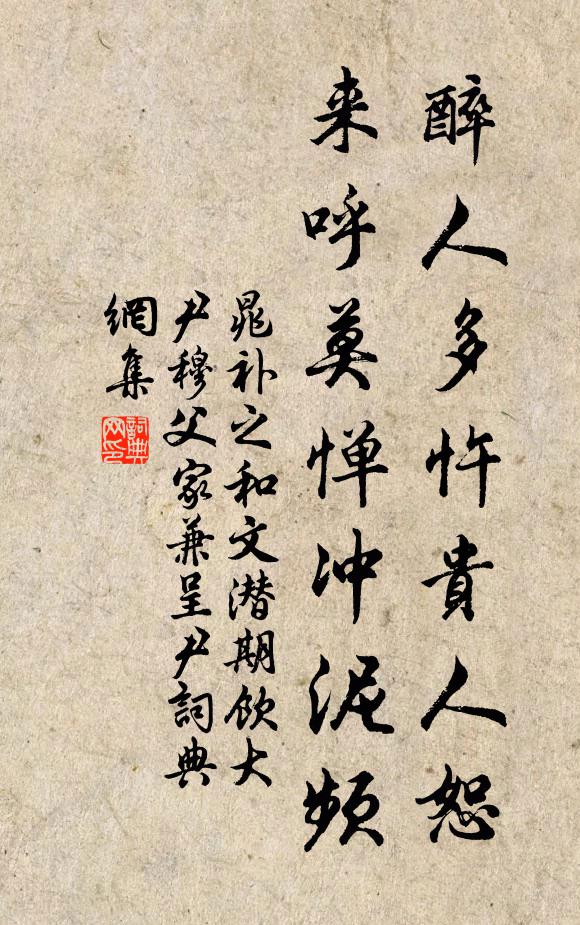 醉人多忤貴人恕
来呼莫惮冲泥頻
晁补之和文潜期飲大
尹穆父家兼呈尹詞典
網集
詞典网印